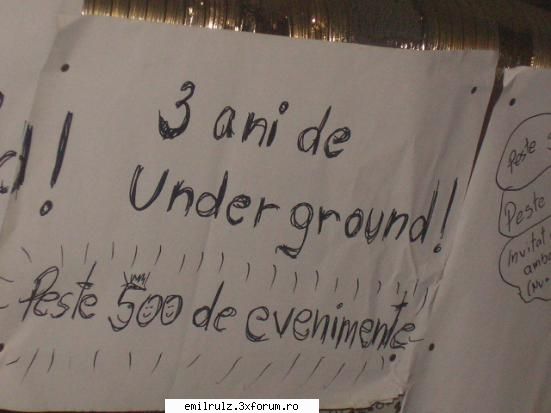 d!
3 ani de
Underground!
Peste 500 de evenimente
Peste
Peste
Invitat
emilrulz.3xforum.ro